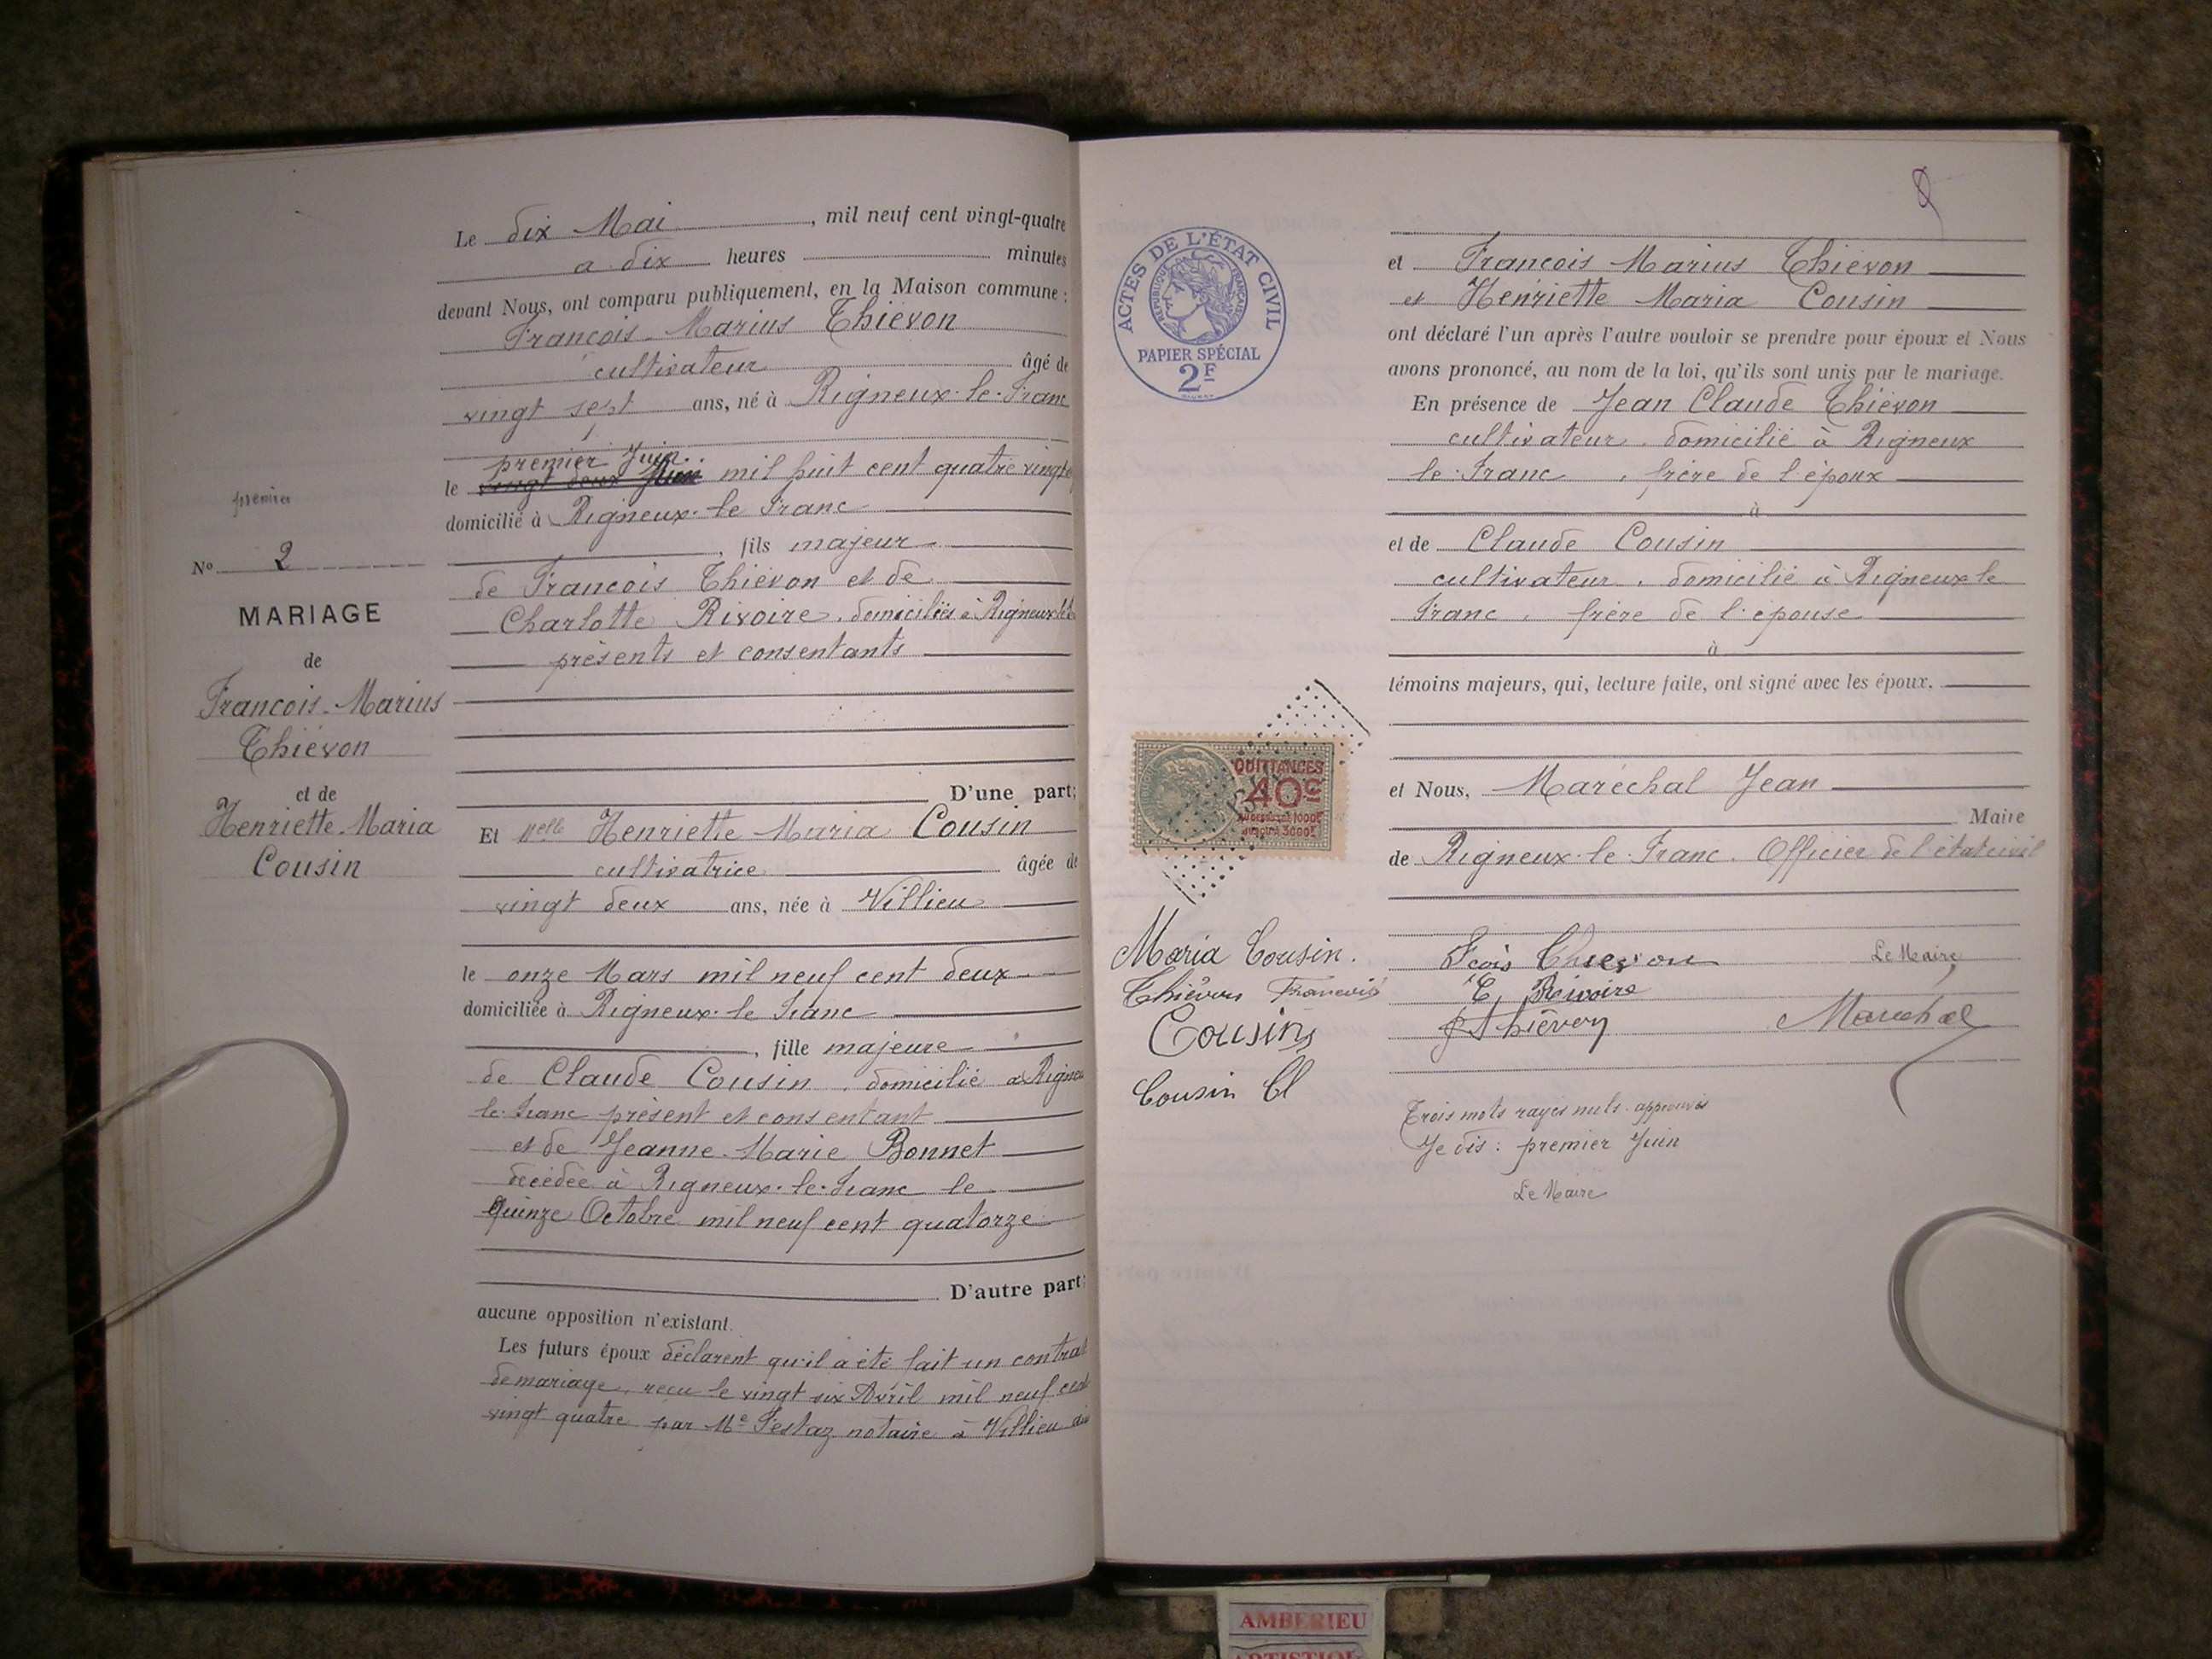 Le dix Mai, mil neuf cent vingt-quatre
a dix heures minutes
devant Nous, ont comparu publiquement, en la Maison commune :
François-Marius Thiévon
cultivateur âgé de
vingt sept ans, né à Rigneux-le-Franc
premier Juin
le vingt deux mil huit cent quatre vingt
domicilié à Rigneux-le Franc
, fils majeur
de François Thiévon et de
Charlotte Rivoire, domiciliés à Rigneux le
présents et consentants
D'une part;
premier
No 2
MARIAGE
de
François-Marius
Thiévon
et de
Henriette-Maria
Cousin
Et Melle Henriette Maria Cousin
cultivatrice âgée de
vingt deux ans, née à Villieu
le onze Mars mil neuf cent deux
domiciliée à Rigneux-le Franc
, fille majeure
de Claude Cousin, domicilié à Rigneu
le-Franc présent et consentant
et de Jeanne-Marie Bonnet
décédée à Rigneux-le-Franc le
Quinze Octobre mil neuf cent quatorze
D'autre part;
aucune opposition n'existant.
Les futurs époux déclarent qu'il a été fait un contrat
de mariage, reçu le vingt six Avril mil neuf cent
vingt quatre par Me notaire à Villieu
ACTES DE L'ÉTAT CIVIL
RÉPUBLIQUE FRANÇAISE
PAPIER SPÉCIAL
2F
et François Marius Thiévon
et Henriette Maria Cousin
ont déclaré l'un après l'autre vouloir se prendre pour époux et Nous
avons prononcé, au nom de la loi, qu'ils sont unis par le mariage.
En présence de Jean Claude Thiévon
cultivateur, domicilié à Rigneux
le-Franc, frère de l'époux
à
et de Claude Cousin
cultivateur, domicilié à Rigneux-le
Franc, frère de l'épouse
à
témoins majeurs, qui, lecture faite, ont signé avec les époux.
QUITTANCES
40c
et Nous, Maréchal Jean
Maire
de Rigneux-le-Franc. Officier de l'état civil
Maria Cousin.
Thiévon François
Cousin
Cousin Cl
Fçois Thievon
C. Rivoire
J Thiévon
Le Maire,
Marechal
Trois mots rayés nuls. approuvés
Je dis : premier Juin
Le Maire
AMBERIEU